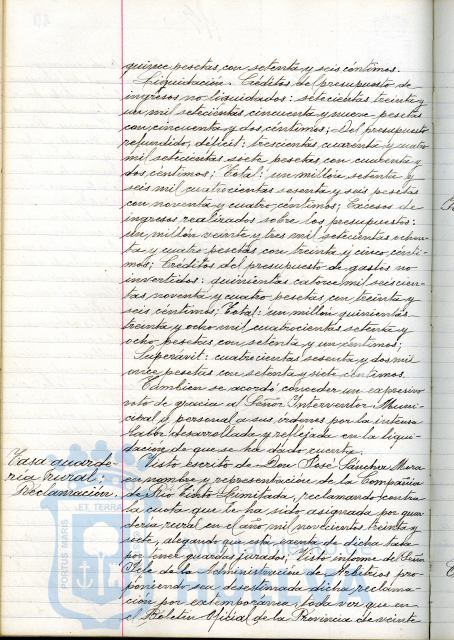 quince pesetas con setenta y seis céntimos.
Liquidación. Créditos del presupuesto de
ingresos no liquidados: setecientas treinta y
un mil setecientas cincuenta y nueve pesetas
con cincuenta y dos céntimos; Del presupuesto
refundido, déficit: trescientas cuarenta y cuatro
mil setecientas siete pesetas con cuarenta y
dos céntimos; Total: un millón setenta y
seis mil cuatrocientas sesenta y seis pesetas
con noventa y cuatro céntimos; Excesos de
ingresos realizados sobre los presupuestos:
un millón veinte y tres mil setecientas ochen-
ta y cuatro pesetas con treinta y cinco cénti-
mos; Créditos del presupuesto de gastos no
invertidos: quinientas catorce mil seiscien-
tas noventa y cuatro pesetas con treinta y
seis céntimos; Total: un millón quinientas
treinta y ocho mil cuatrocientas setenta y
ocho pesetas con setenta y un céntimos;
Superávit: cuatrocientas sesenta y dos mil
once pesetas con setenta y siete céntimos.
Tambien se acordó conceder un expresivo
voto de gracia al Señor Interventor Muni-
cipal y personal a sus órdenes por la intensa
labor desarrollada y reflejada en la liqui-
dación de que se ha dado cuenta.
Tasa guarde-
ría rural;
Reclamación.
Visto escrito de Don José Sánchez Mora
en nombre y representación de la Compañía
de Rio Tinto Limitada, reclamando contra
la cuota que le ha sido asignada por guar-
dería rural en el año mil novecientos treinta y
siete, alegando que está exenta de dicha tasa
por tener guardas jurados; Visto informe del Señor
Jefe de la Administración de Arbitrios pro-
poniendo sea desestimada dicha reclama-
ción por extemporánea, toda vez que en
el Boletín Oficial de la Provincia de veinte
PORTUS MARIS ET TERRAE